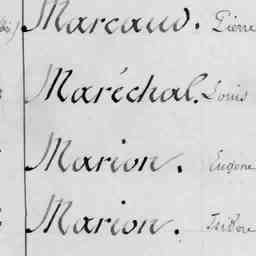 Marcaud. Pierre
Maréchal. Louis
Marion. Eugène
Marion. Isidore